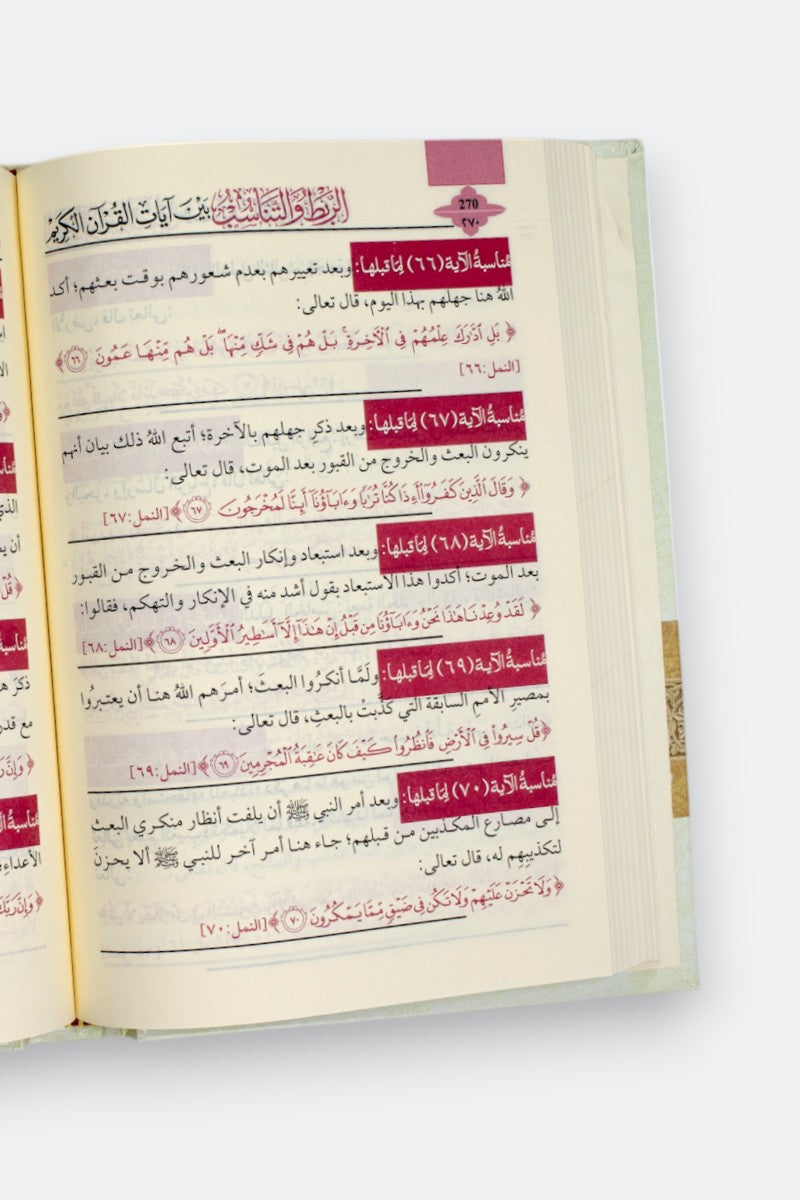 الرَّبْطُ وَالتَّنَاسُبُ بَيْنَ آيَاتِ القُرْآنِ الكَرِيْمِ
270
٢٧٠
مُناسبةُ الآية (٦٦) لِمَا قبلها: وبعد تعييرهم بعدم شعورهم بوقت بعثهم؛ أكد
اللهُ هنا جهلهم بهذا اليوم، قال تعالى:
﴿ بَلِ ٱدَّٰرَكَ عِلْمُهُمْ فِى ٱلْءَاخِرَةِ ۚ بَلْ هُمْ فِى شَكٍّ مِّنْهَا ۖ بَلْ هُم مِّنْهَا عَمُونَ ٦٦ ﴾
[النمل:٦٦]
مُناسبةُ الآية (٦٧) لِمَا قبلها: وبعد ذكرِ جهلهم بالآخرة؛ أتبع اللهُ ذلك بيان أنهم
ينكرون البعث والخروج من القبور بعد الموت، قال تعالى:
﴿ وَقَالَ ٱلَّذِينَ كَفَرُوٓا۟ أَءِذَا كُنَّا تُرَٰبًا وَءَابَآؤُنَآ أَئِنَّا لَمُخْرَجُونَ ٦٧ ﴾ [النمل:٦٧]
مُناسبةُ الآية (٦٨) لِمَا قبلها: وبعد استبعاد وإنكار البعث والخروج من القبور
بعد الموت؛ أكدوا هذا الاستبعاد بقول أشد منه في الإنكار والتهكم، فقالوا:
﴿ لَقَدْ وُعِدْنَا هَٰذَا نَحْنُ وَءَابَآؤُنَا مِن قَبْلُ إِنْ هَٰذَآ إِلَّآ أَسَٰطِيرُ ٱلْأَوَّلِينَ ٦٨ ﴾ [النمل:٦٨]
مُناسبةُ الآية (٦٩) لِمَا قبلها: ولَمَّا أنكرُوا البعثَ؛ أمرَهم اللهُ هنا أن يعتبرُوا
بمصيرِ الأممِ السابقة التي كذَّبتْ بالبعثِ، قال تعالى:
﴿ قُلْ سِيرُوا۟ فِى ٱلْأَرْضِ فَٱنظُرُوا۟ كَيْفَ كَانَ عَٰقِبَةُ ٱلْمُجْرِمِينَ ٦٩ ﴾ [النمل:٦٩]
مُناسبةُ الآية (٧٠) لِمَا قبلها: وبعد أمر النبي ﷺ أن يلفت أنظار منكري البعث
إلى مصارع المكذبين من قبلهم؛ جاء هنا أمر آخر للنبي ﷺ ألا يحزنَ
لتكذيبِهِم له، قال تعالى:
﴿ وَلَا تَحْزَنْ عَلَيْهِمْ وَلَا تَكُن فِى ضَيْقٍ مِّمَّا يَمْكُرُونَ ٧٠ ﴾ [النمل:٧٠]